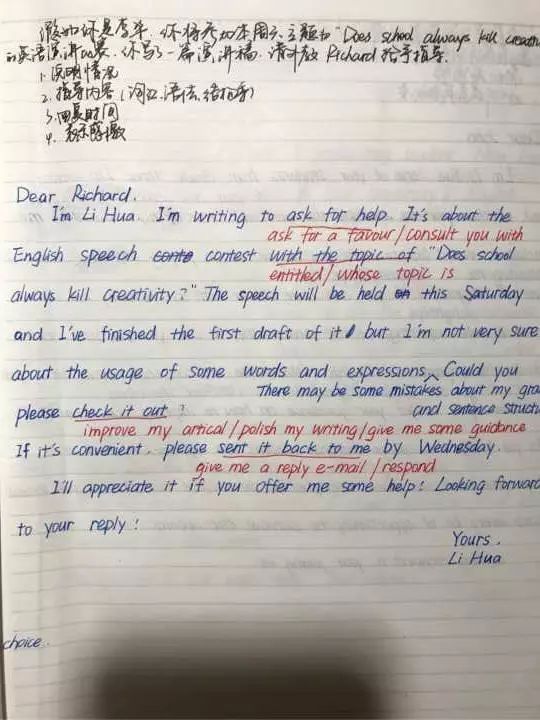 假如你是李华，你将参加本周六主题为"Does school always kill creativ
的英语演讲比赛，你写了一篇演讲稿，请外教 Richard 给予指导。
1. 说明情况
2. 指导内容（词汇、语法、结构等）
3. 回复时间
4. 表示感激
Dear Richard.
I'm Li Hua. I'm writing to ask for help. It's about the
ask for a favour/consult you with
English speech conte contest with the topic of "Does school
entitled/whose topic is
always kill creativity?" The speech will be held on this Saturday
and I've finished the first draft of it but I'm not very sure
about the usage of some words and expressions. Could you
There may be some mistakes about my gra
please check it out ?
and sentence structu
improve my artical/polish my writing/give me some guidance
If it's convenient, please sent it back to me by Wednesday.
give me a reply e-mail/respond
I'll appreciate it if you offer me some help! Looking forward
to your reply!
Yours,
Li Hua
choice.